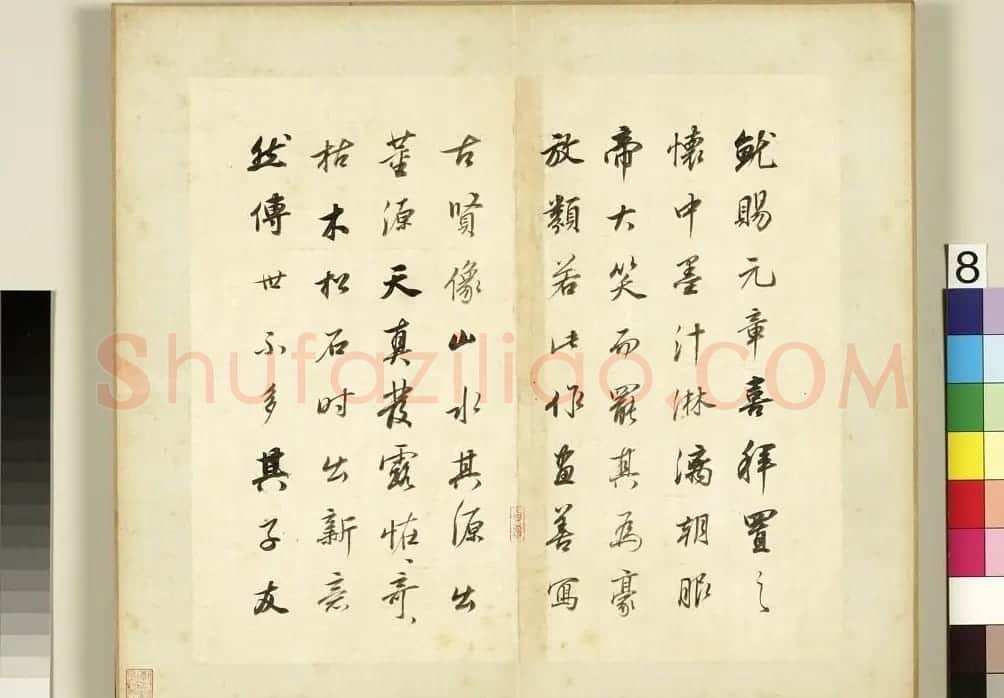 就賜元章喜拜置之
懷中墨汁淋漓朝服
帝大笑而罷其為豪
放類若此作畫善寫
古賢像山水其源出
董源天真發露怪、奇、
枯木松石時出新意
然傳世不多其子友
Shufaziliao.COM
8